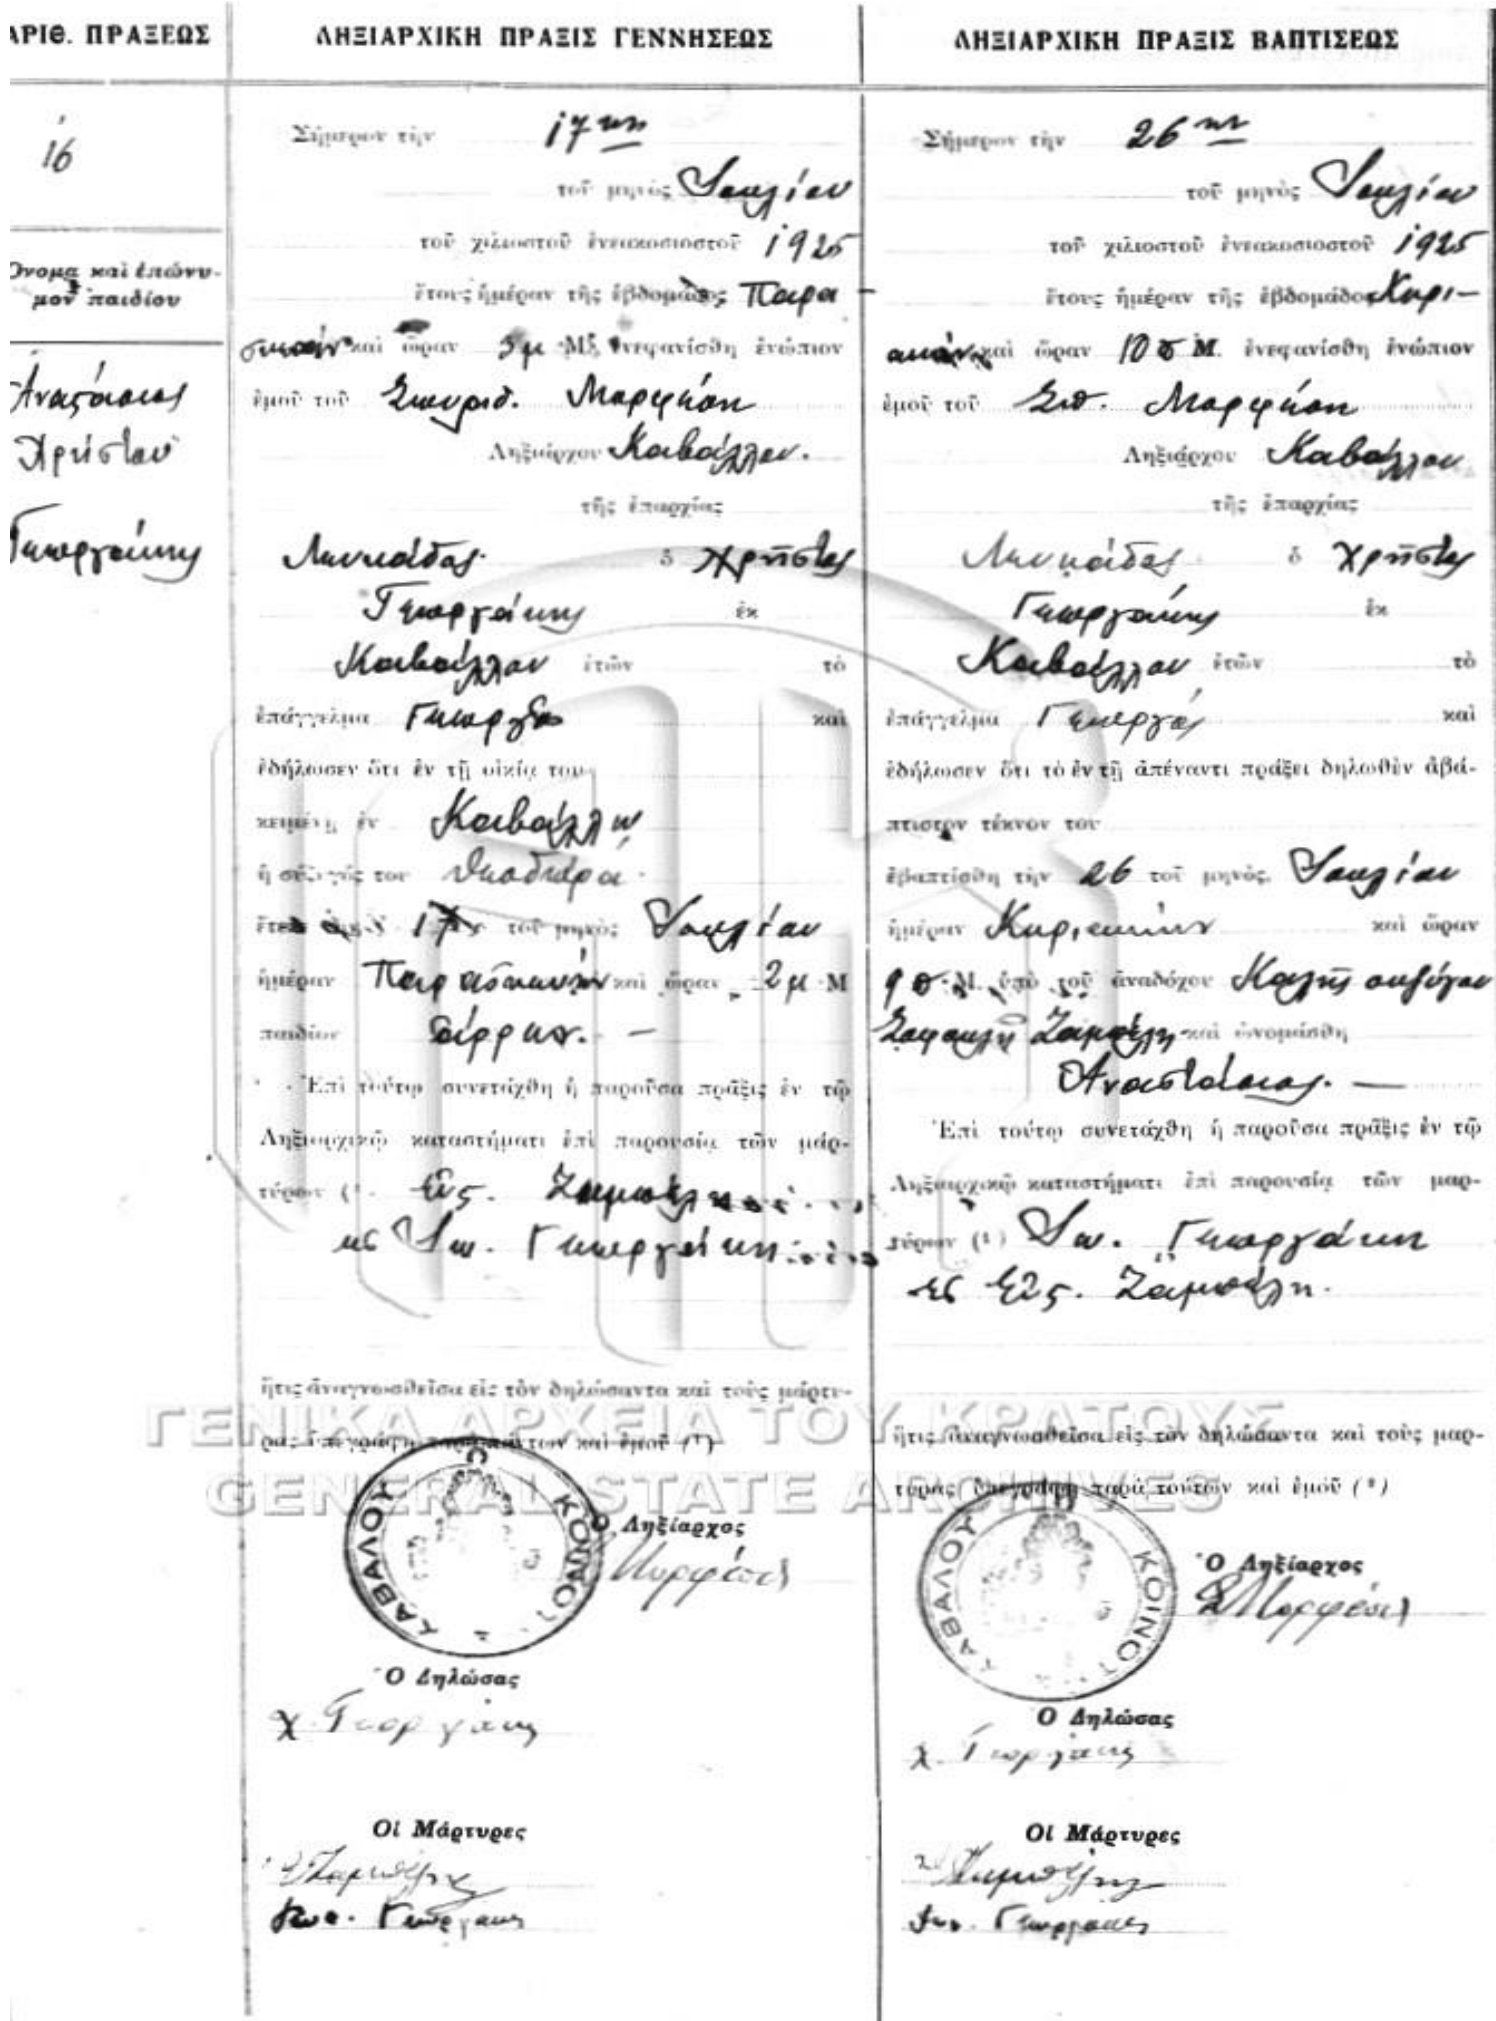 ΑΡΙΘ. ΠΡΑΞΕΩΣ
16
Ὄνομα καὶ ἐπώνυ-
μον παιδίου
Ἀναστάσιος
Χρήστου
Γεωργάκης
ΛΗΞΙΑΡΧΙΚΗ ΠΡΑΞΙΣ ΓΕΝΝΗΣΕΩΣ
Σήμερον τὴν 17ην
τοῦ μηνὸς Ἰουλίου
τοῦ χιλιοστοῦ ἐνεακοσιοστοῦ 1925
ἔτους ἡμέραν τῆς ἑβδομάδος Παρα-
σκευὴν καὶ ὥραν 3 μ Μ. ἐνεφανίσθη ἐνώπιον
ἐμοῦ τοῦ Σπυριδ. Μορφέση
Ληξιάρχου Καβάλλου.
τῆς ἐπαρχίας
Λευκάδος ὁ Χρῆστος
Γεωργάκης ἐκ
Καβάλλου ἐτῶν τὸ
ἐπάγγελμα Γεωργὸς καὶ
ἐδήλωσεν ὅτι ἐν τῇ οἰκίᾳ του
κειμένῃ ἐν Καβάλλῳ
ἡ σύζυγός του Θεοδώρα
ἔτεκε 17 τοῦ μηνὸς Ἰουλίου
ἡμέραν Παρασκευὴν καὶ ὥραν 2 μ Μ
παιδίον ἄρρεν. —
Ἐπὶ τούτῳ συνετάχθη ἡ παροῦσα πρᾶξις ἐν τῷ
Ληξιαρχικῷ καταστήματι ἐπὶ παρουσίᾳ τῶν μάρ-
τύρων (¹ Εὐς. Ζαμπέλη
κὲ Ἰω. Γεωργάκη
ἥτις ἀναγνωσθεῖσα εἰς τὸν δηλώσαντα καὶ τοὺς μάρτυ-
ρας ὑπεγράφη παρὰ πάντων καὶ ἐμοῦ (¹)
ΚΟΙΝΟΤ ΚΑΒΑΛΟΥ
Ὁ Ληξίαρχος
Μορφέσης
Ὁ Δηλώσας
Χ. Γεωργάκης
Οἱ Μάρτυρες
Ζαμπέλης
Ιωα. Γεωργάκης
ΛΗΞΙΑΡΧΙΚΗ ΠΡΑΞΙΣ ΒΑΠΤΙΣΕΩΣ
Σήμερον τὴν 26ην
τοῦ μηνὸς Ἰουλίου
τοῦ χιλιοστοῦ ἐνεακοσιοστοῦ 1925
ἔτους ἡμέραν τῆς ἑβδομάδος Κυρι-
ακὴν καὶ ὥραν 10 π Μ. ἐνεφανίσθη ἐνώπιον
ἐμοῦ τοῦ Σπ. Μορφέση
Ληξιάρχου Καβάλλου
τῆς ἐπαρχίας
Λευκάδος ὁ Χρῆστος
Γεωργάκης ἐκ
Καβάλλου ἐτῶν τὸ
ἐπάγγελμα Γεωργὸς καὶ
ἐδήλωσεν ὅτι τὸ ἐν τῇ ἀπέναντι πράξει δηλωθὲν ἀβά-
πτιστον τέκνον του
ἐβαπτίσθη τὴν 26 τοῦ μηνὸς Ἰουλίου
ἡμέραν Κυριακὴν καὶ ὥραν
9 π. Μ. ὑπὸ τοῦ ἀναδόχου Καλῆς συζύγου
Σοφοκλῆ Ζαμπέλη καὶ ὠνομάσθη
Ἀναστάσιος. —
Ἐπὶ τούτῳ συνετάχθη ἡ παροῦσα πρᾶξις ἐν τῷ
Ληξιαρχικῷ καταστήματι ἐπὶ παρουσίᾳ τῶν μαρ-
τύρων (¹) Ἰω. Γεωργάκη
κὲ Εὐς. Ζαμπέλη.
ἥτις ἀναγνωσθεῖσα εἰς τὸν δηλώσαντα καὶ τοὺς μαρ-
τυρας ὑπεγράφη παρὰ τούτων καὶ ἐμοῦ (²)
ΚΟΙΝΟΤ ΚΑΒΑΛΟΥ
Ὁ Ληξίαρχος
Σ Μορφέσης
Ὁ Δηλώσας
Χ. Γεωργάκης
Οἱ Μάρτυρες
Ζαμπέλης
Ιω. Γεωργάκης
ΓΕΝΙΚΑ ΑΡΧΕΙΑ ΤΟΥ ΚΡΑΤΟΥΣ
GENERAL STATE ARCHIVES